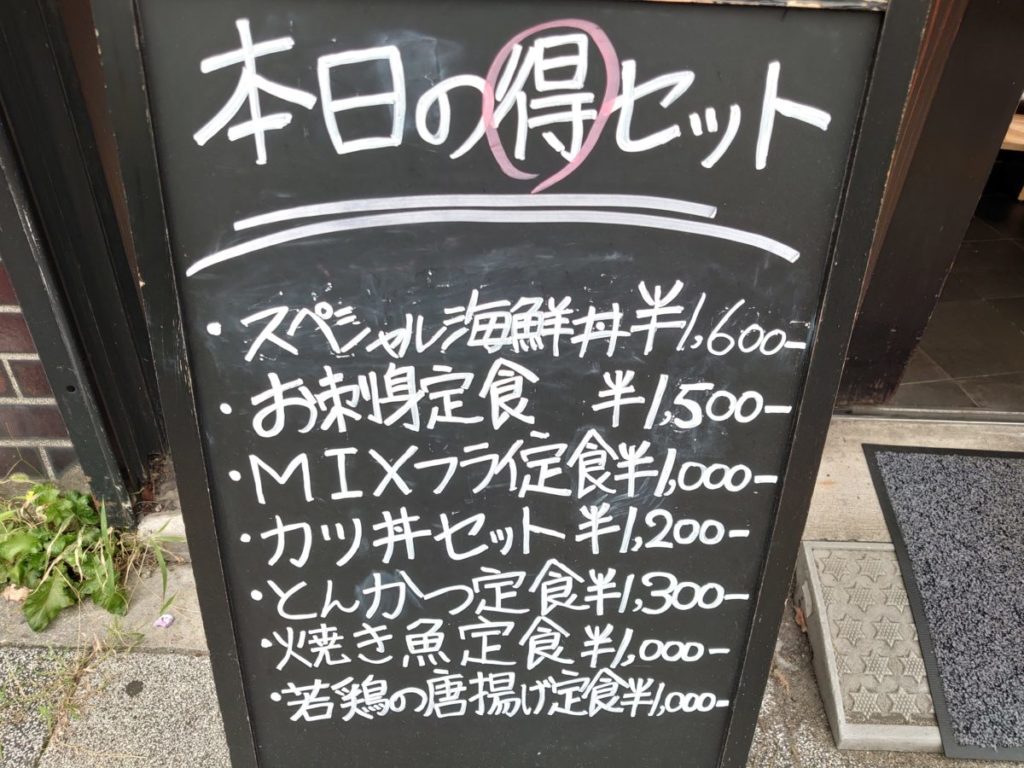 本日の得セット
・スペシャル海鮮丼 ¥1,600-
・お刺身定食 ¥1,500-
・MIXフライ定食 ¥1,000-
・カツ丼セット ¥1,200-
・とんかつ定食 ¥1,300-
・焼き魚定食 ¥1,000-
・若鶏の唐揚げ定食 ¥1,000-